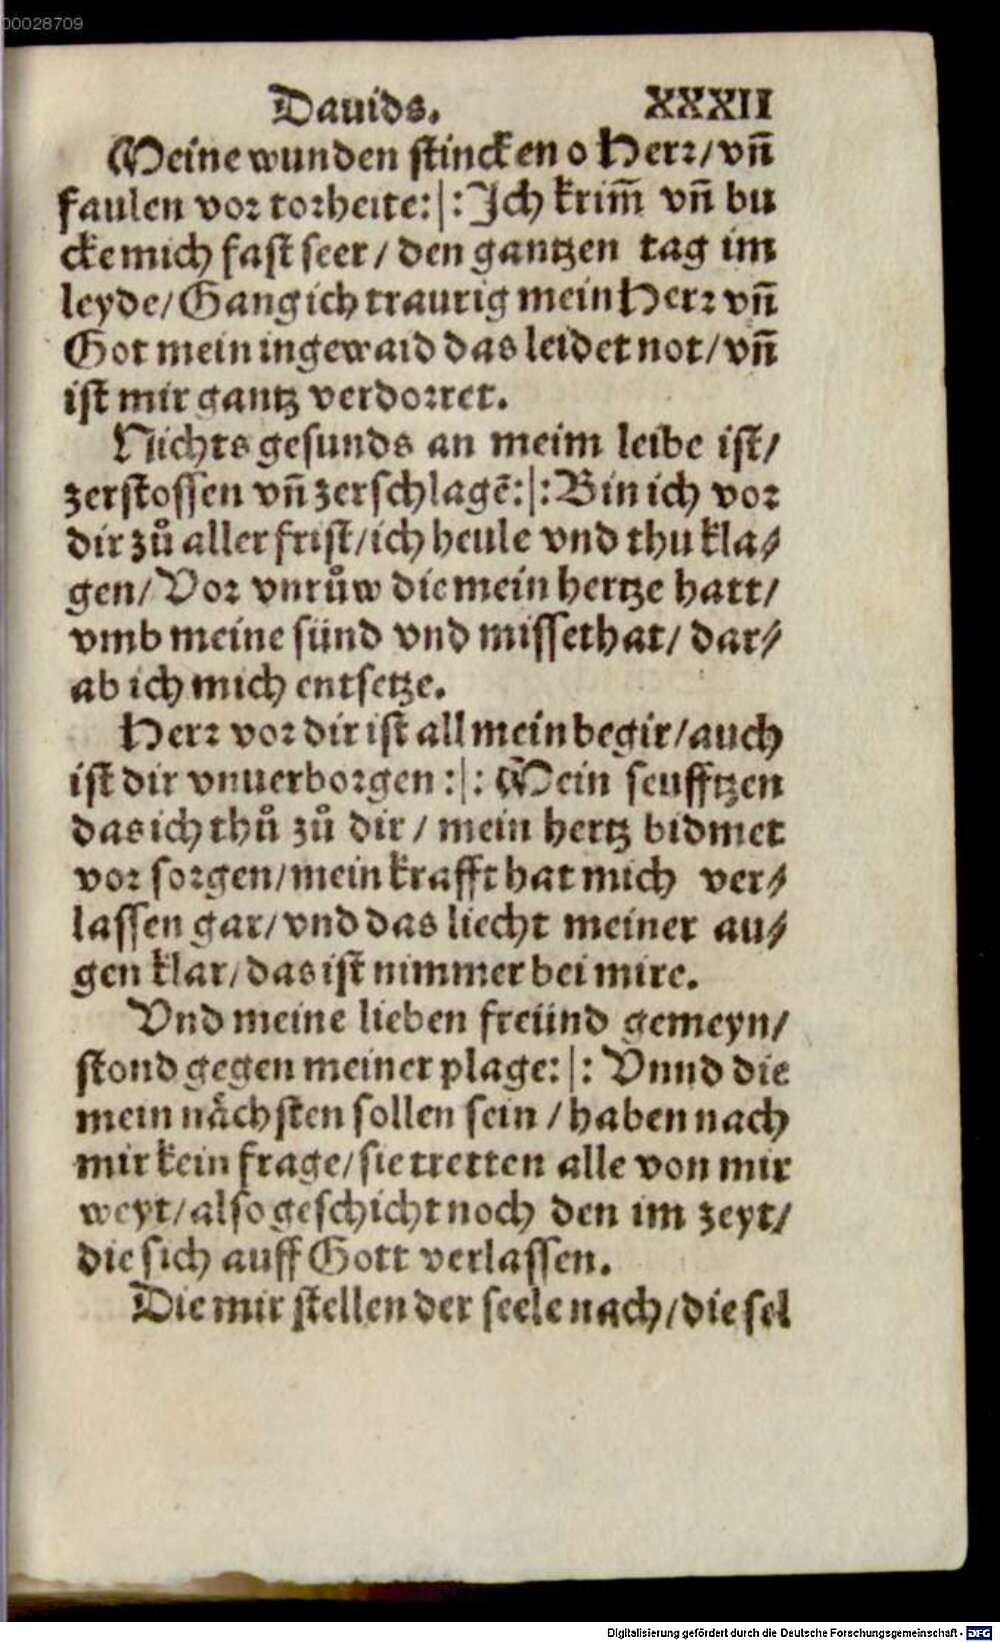 00028709
Dauids. XXXII
Meine wunden stincken o Herr/ vñ
faulen vor torheite:|: Ich krim̃ vñ bu
cke mich fast seer / den gantzen tag im
leyde/ Gang ich traurig mein Herr vñ
Got mein ingewaid das leidet not/ vñ
ist mir gantz verdorret.
Nichts gesunds an meim leibe ist/
zerstossen vñ zerschlagẽ:|: Bin ich vor
dir zů aller frist/ ich heule vnd thu kla⸗
gen/ Vor vnrůw die mein hertze hatt/
vmb meine sünd vnd missethat/ dar⸗
ab ich mich entsetze.
Herr vor dir ist all mein begir/ auch
ist dir vnuerborgen :|: Mein seufftzen
das ich thů zů dir / mein hertz bidmet
vor sorgen/ mein krafft hat mich ver⸗
lassen gar/ vnd das liecht meiner au⸗
gen klar/ das ist nimmer bei mire.
Vnd meine lieben freünd gemeyn/
stond gegen meiner plage:|: Vnnd die
mein nåchsten sollen sein / haben nach
mir kein frage/ sie tretten alle von mir
weyt/ also geschicht noch den im zeyt/
die sich auff Gott verlassen.
Die mir stellen der seele nach/ die sel
Digitalisierung gefördert durch die Deutsche Forschungsgemeinschaft - DFG